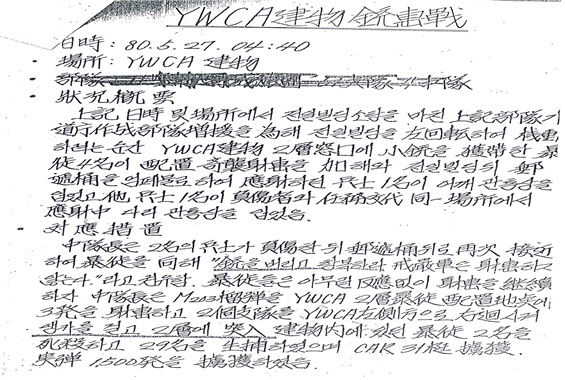 YWCA建物 銃擊戰
日時 : 80. 5. 27. 04 : 40
• 場所 : YWCA 建物
• 部隊
• 狀況槪要
上記 日時 및 場所에서 전일빌딩소탕을 마친 上記部隊가
道庁作戰部隊增援을 爲해 전일빌딩을 左回転하여 機動
하려는 순간 YWCA建物 2層窓口에 小銃을 携帶한 暴
徒 4名이 配置 奇襲射擊을 加해와 전일빌딩의 郵
遞桶을 엄폐물로 하여 應射하던 兵士 1名이 어깨 관통상을
입었고 他 兵士 1名이 負傷者와 任務交代 同一 場所에서
應射中 다리 관통상을 입었음.
• 対應措置
中隊長은 2名의 兵士가 負傷한 뒤 郵遞桶뒤로 再次 接近
하여 暴徒을 向해 "銃을 버리고 항복하라 戒嚴軍은 射擊하지
않는다."라고 하자 暴徒들은 아무런 反應없이 射擊을 継續
하자 中隊長은 M203榴弾을 YWCA 2層暴徒 配置地点에
3発을 射擊하고 2個支隊을 YWCA左側方으로 右廻시켜
걸고 2層에 突入 建物内에 있던 暴徒 2名을
死殺하고 29名을 生捕하였으며 CAR 31梃 擄獲.
実弾 1,500発을 擄獲하였음.